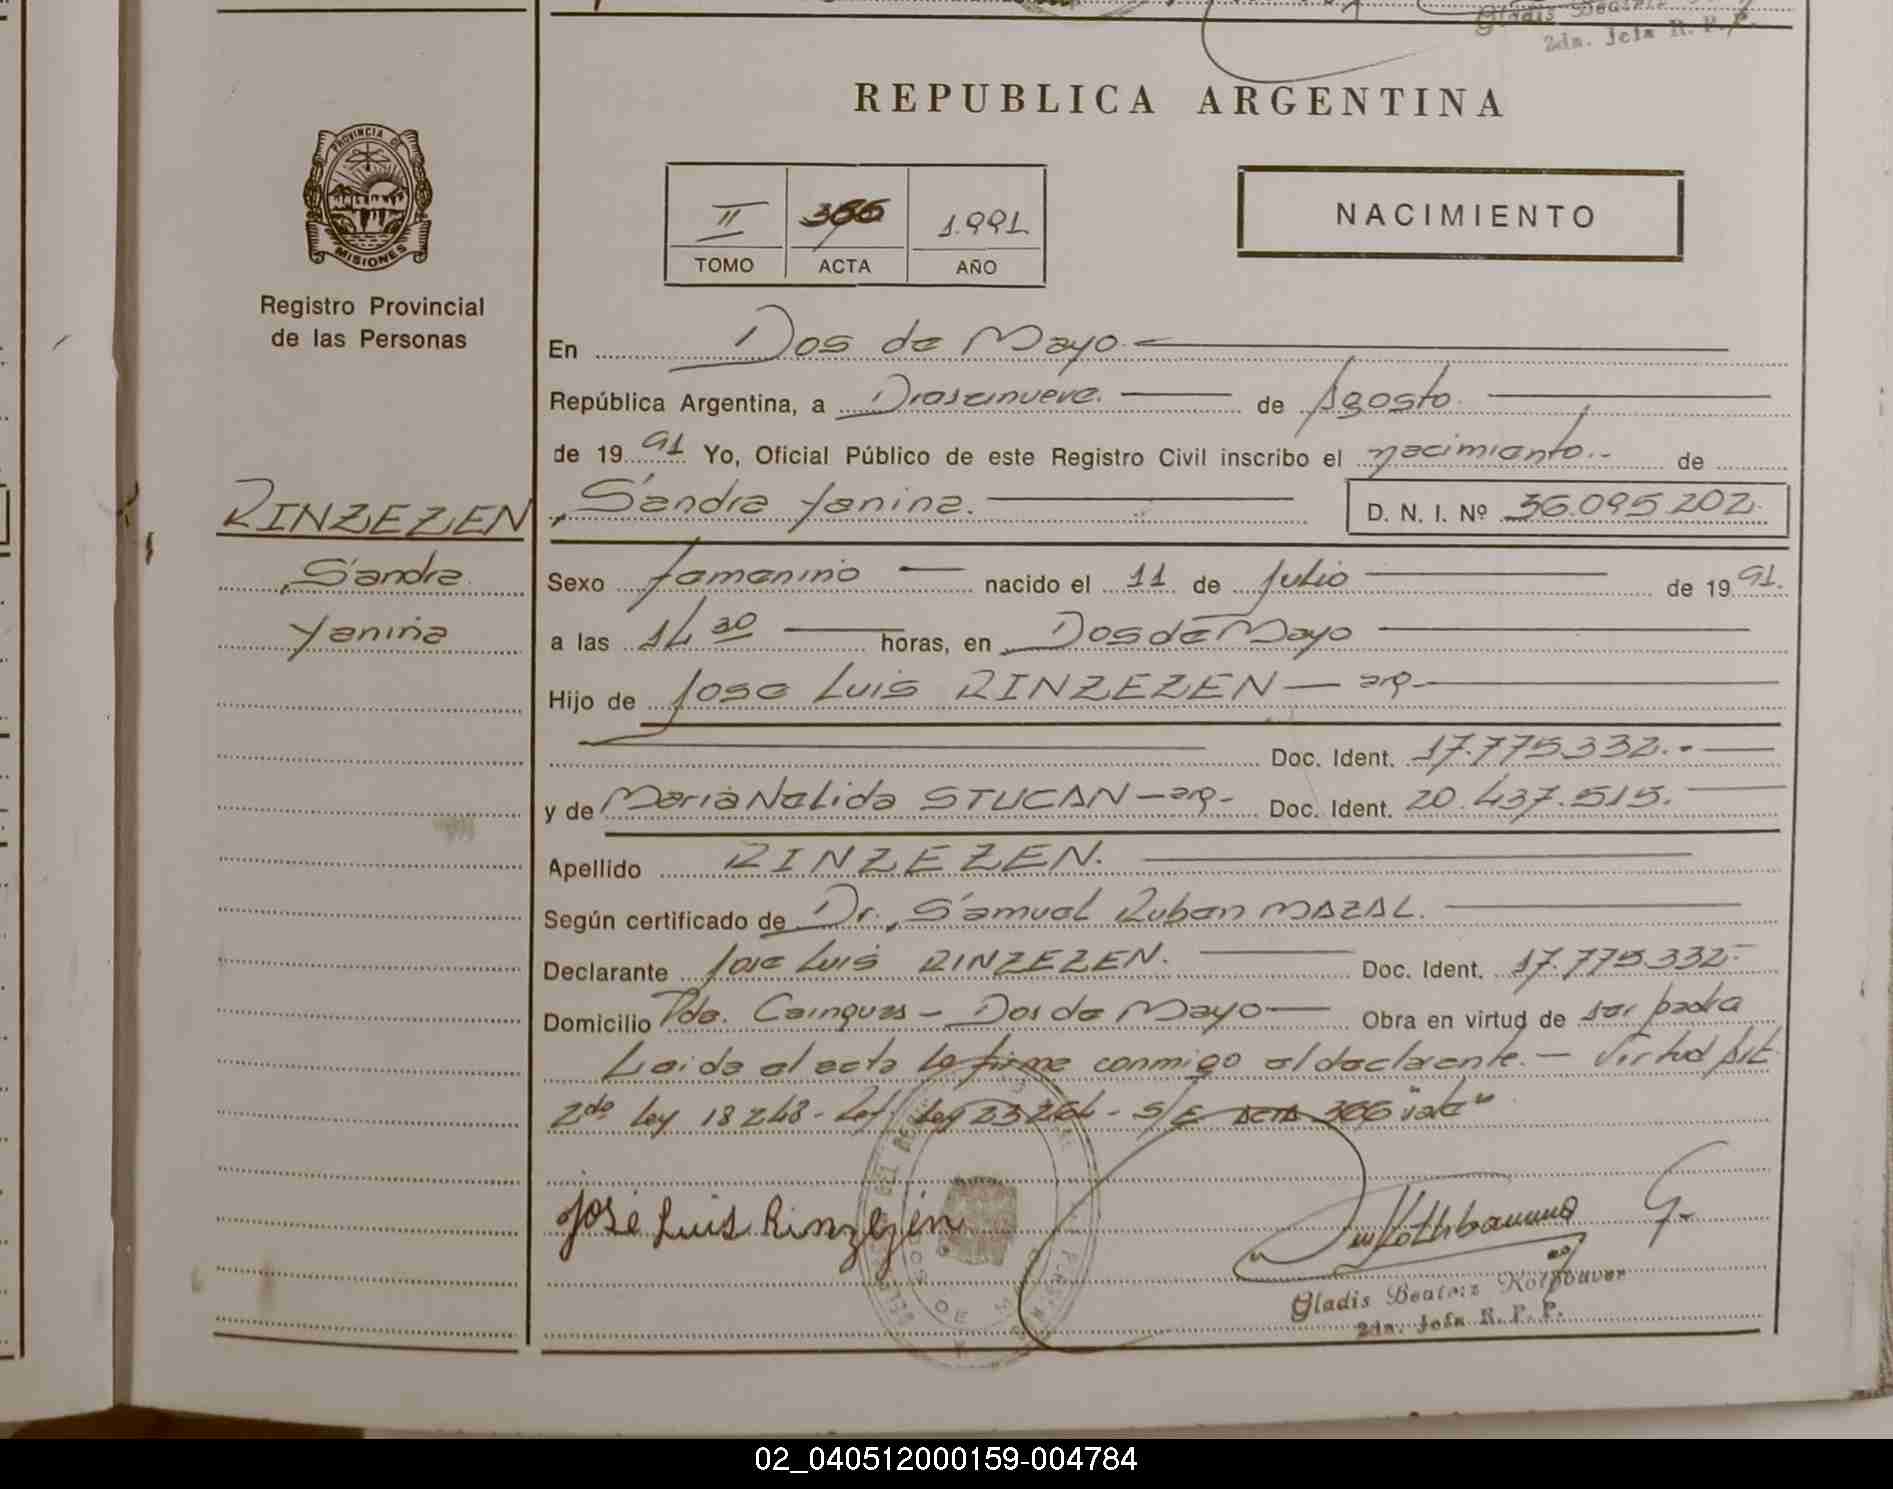 Gladis Beatriz
2da. Jefa R. P. P.
REPUBLICA ARGENTINA
PROVINCIA DE
MISIONES
Registro Provincial
de las Personas
II 366 1.991
TOMO ACTA AÑO
NACIMIENTO
En Dos de Mayo.
República Argentina, a Diesinueve. de Agosto.
de 19 91 Yo, Oficial Público de este Registro Civil inscribo el nacimiento.- de
RINZEZEN, Sandra Yanina. D. N. I. Nº 36.095.202.
Sandra
Yanina
Sexo femenino nacido el 11 de Julio de 19 91.
a las 14 30 horas, en Dos de Mayo
Hijo de Jose Luis RINZEZEN — arg-
Doc. Ident. 17.775.332.-
y de Maria Nelida STUCAN - arg- Doc. Ident. 20.437.515.
Apellido RINZEZEN.
Según certificado de Dr. Samuel Ruben MAZAL.
Declarante Jose Luis RINZEZEN. Doc. Ident. 17.775.332-
Domicilio Pdo. Cainguas - Dos de Mayo Obra en virtud de ser padre
Leida el acta la firma conmigo el declarante. - Virtud Art.
2do Ley 18248 - Ley 23264 - S/E ACTA 366 "vale"
José Luis Rinzezen
Gladis Beatriz
2da. Jefa R. P. P.
02_040512000159-004784